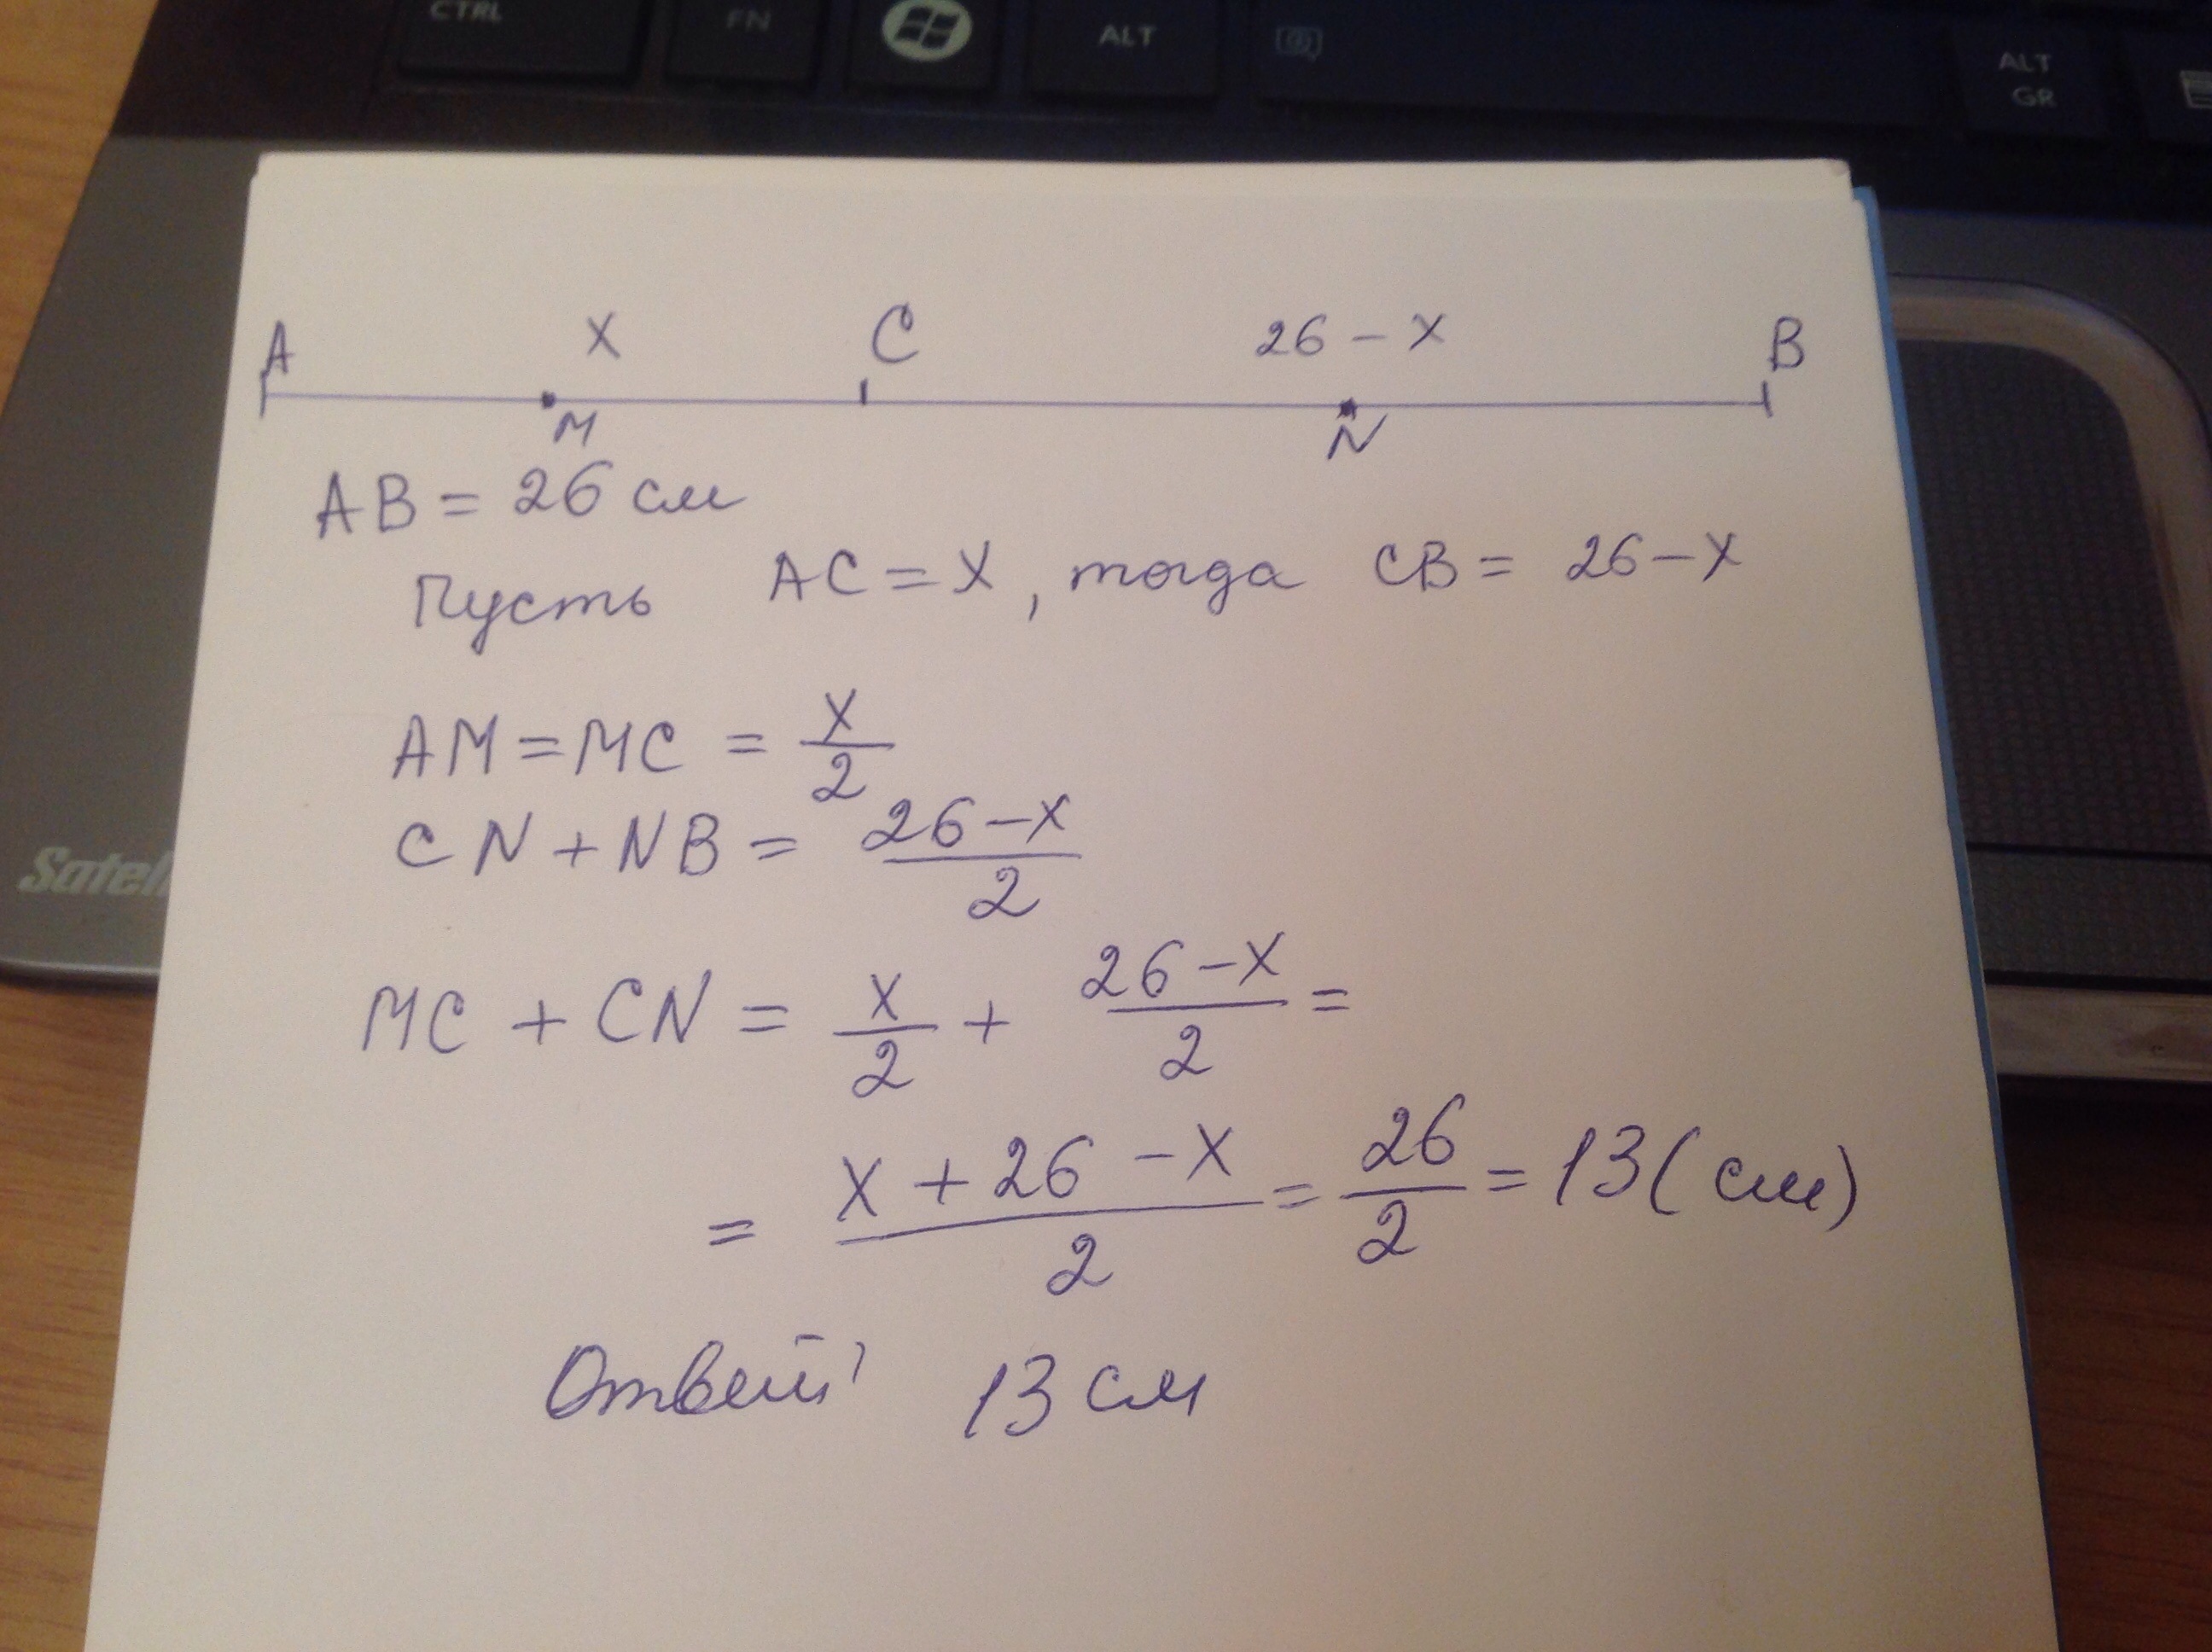 CTRL FN ALT ALT
GR
A X C 26 - X B
M N
AB = 26 см
Пусть AC = X, тогда CB = 26 - X
AM = MC = X/2
CN + NB = 26 - X/2
MC + CN = X/2 + 26 - X/2 =
= X + 26 - X/2 = 26/2 = 13 (см)
Ответ: 13 см
Satell